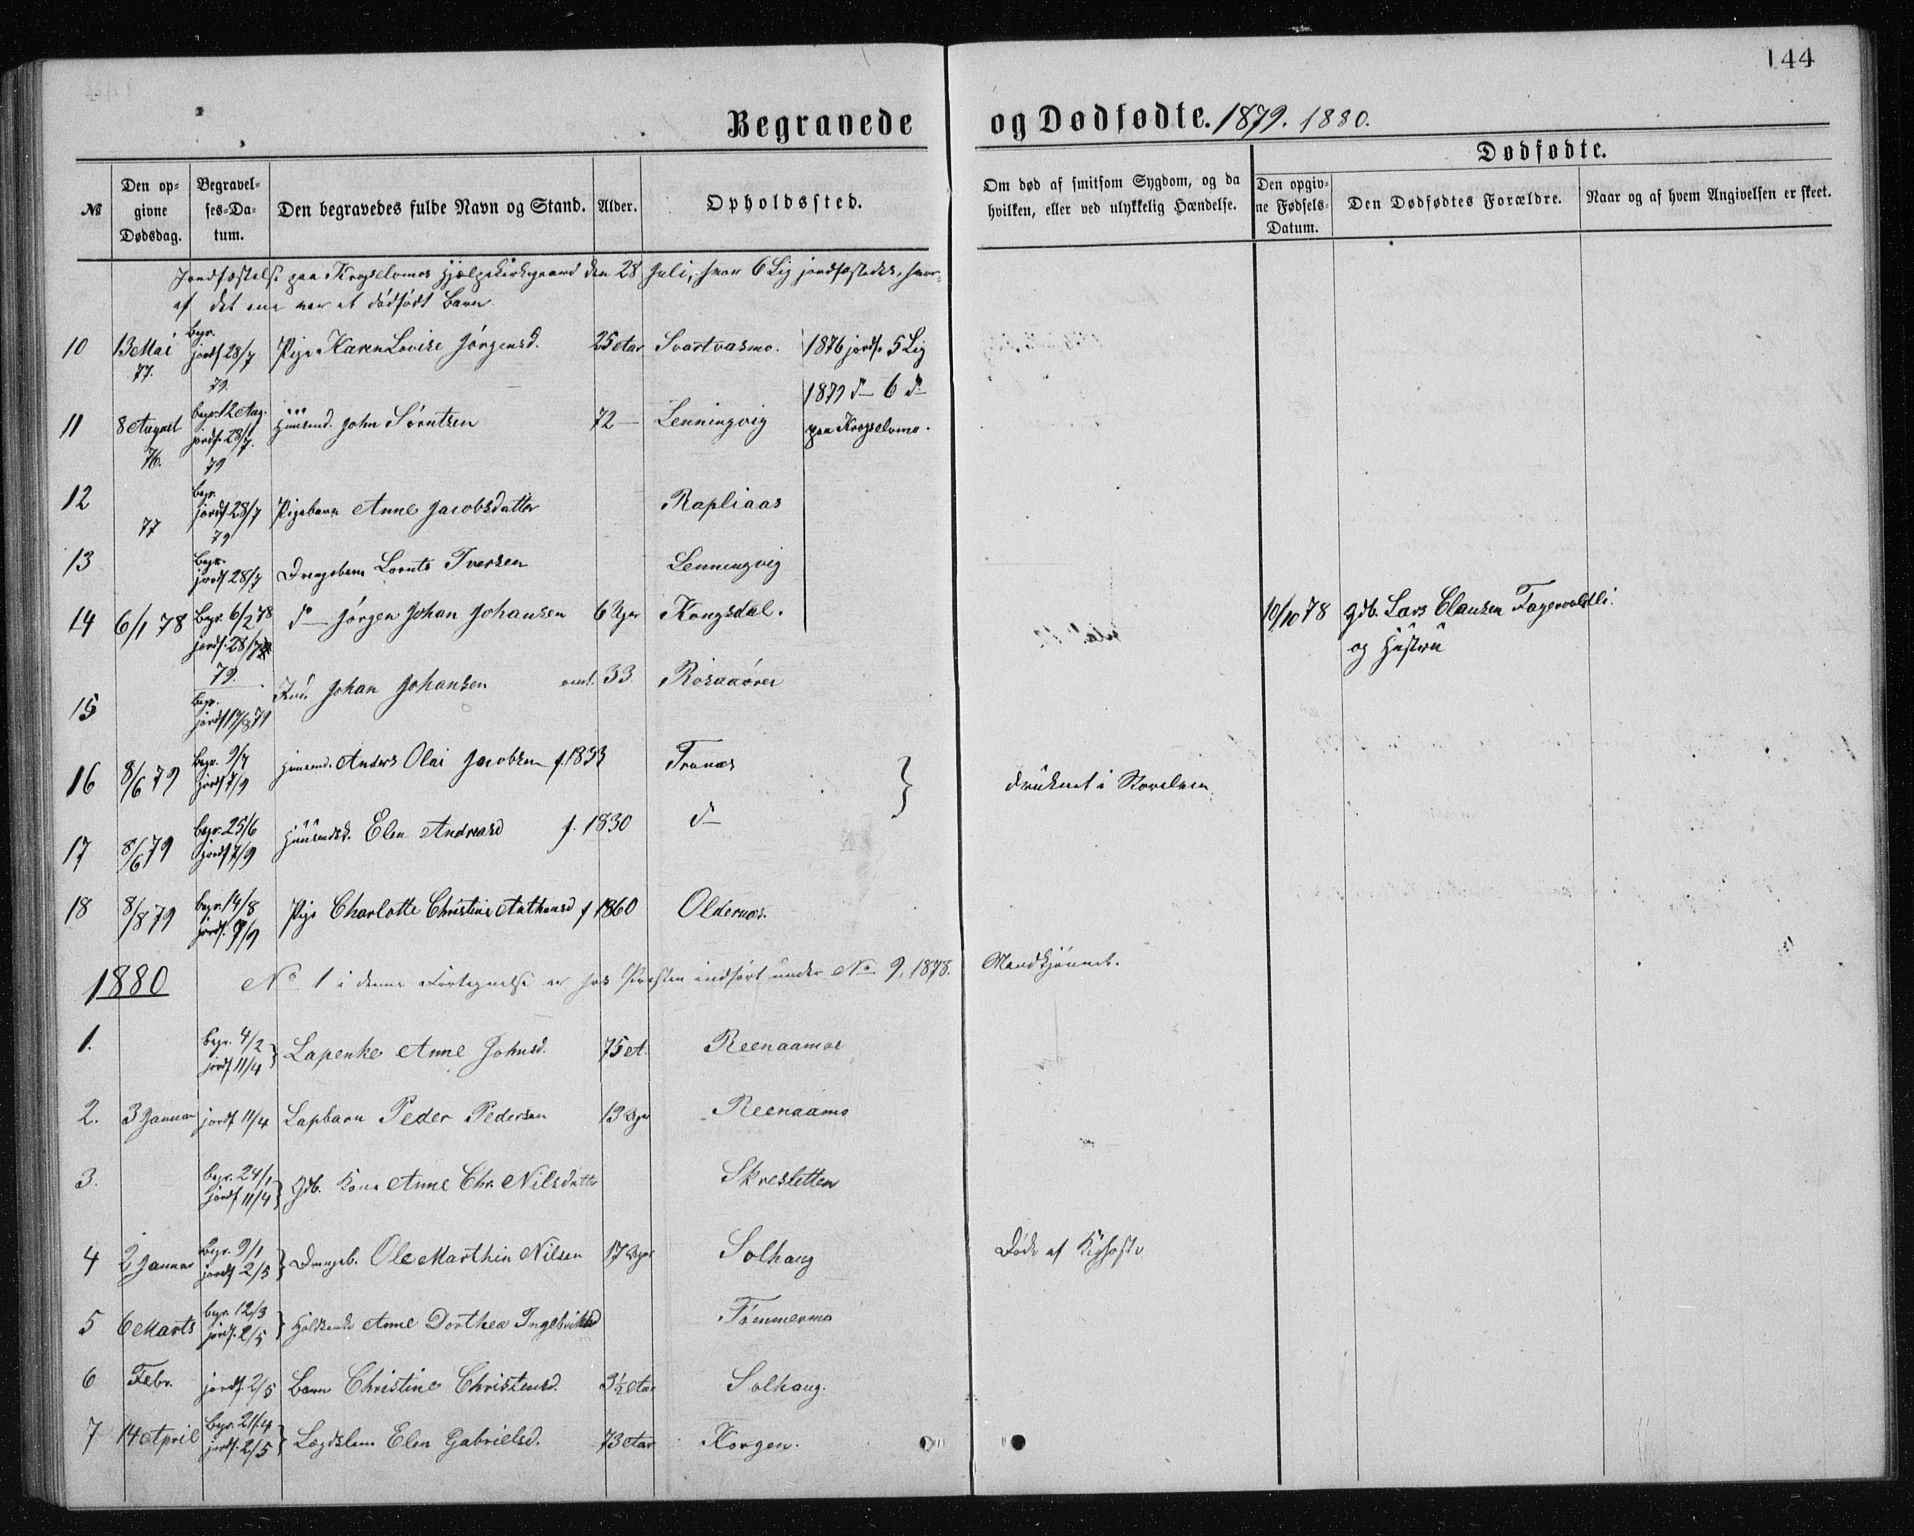 144
Begravede og Dødfødte. 1879. 1880.
Dødfødte.
№ Den opgivne Dødsdag. Begravelses-Datum. Den begravedes fulde Navn og Stand. Alder. Opholdssted. Om død af smitsom Sygdom, og da hvilken, eller ved ulykkelig Hændelse. Den opgivne Fødsels-Datum. Den Dødfødtes Forældre. Naar og af hvem Angivelsen er skeet.
Jordfæstelse paa Krogselvmos Hjælpekirkegaard den 28 Juli, hvor 6 Lig jordfæstedes, hvor-
af det ene var et dødfødt Barn.
10 13 Mai 77. begr. jordf 28/7 79. Pige Karen Lovise Jørgensd. 25 Aar Svartvasmo. 1876 jordf. 5 Lig
1879 d— 6 d—
paa Krogselvmo.
11 8 August 76. begr. 12 Aug. jordf. 28/7. 79 Huusmd. John Sørntsen 72 — Lenningvig
12 77 begr. jordf 28/7 79 Pigebarn Anne Jacobsdatter Rapliaas
13 begr. jordf 28/7 Drengebarn Lornts Iversen Lenningvig
14 6/1 78 Begr. 6/2 78 jordf. 28/7 79. d— Jørgen Johan Johansen 6 Uger Kongsdal. 10/10 78 Gdb. Lars Clausen Fagervoldli.
og Hustru
15 begr. jordf 17/8 79 Johan Johansen 33. Røsaaøren
16 8/6 79 Begr. 9/7 jordf 7/9 Huusmd. Anders Olai Jacobsen f. 1833 Tranæs } druknet i Storelven.
17 8/6 79 begr. 25/6 jordf 7/9 Huusmdsk. Elen Andreasd f. 1830 d—
18 8/8 79 begr. 14/8 jordf. 7/9 Pige Charlotte Christine Anthonsd f 1860 Oldernæs.
1880 No. 1 i denne Fortegnelse er hos Præsten indført under No. 9, 1878. Mandkjønnet.
1. begr. 4/2 jordf 11/4 } Lapenke Anne Johnsd. 75 A. Reenaamoe
2. 3 Januar jordf 11/4 Lapbarn Peder Pedersen 13 Uger Reenaamo
3. begr. 24/1 jordf 11/4 } Gdb. Kone Anne Chr. Nilsdatter Skresletten
4 2 Januar Begr. 9/1 jordf 2/5 } Drengeb. Ole Marthin Nilsen 17 Uger Solhaug Døde af Kighoste
5 6 Marts begr. 12/3 jordf. 2/5 } Anne Dorthea Ingebrigtsd Tømmermo
6 Febr. jordf. 2/5 Barn Christine Christensd. 3½ Aar Solhaug.
7 14 April Begr. 21/4 jordf. 2/5 } Lægdslem Elen Gabrielsd. 73 Aar Korgen.